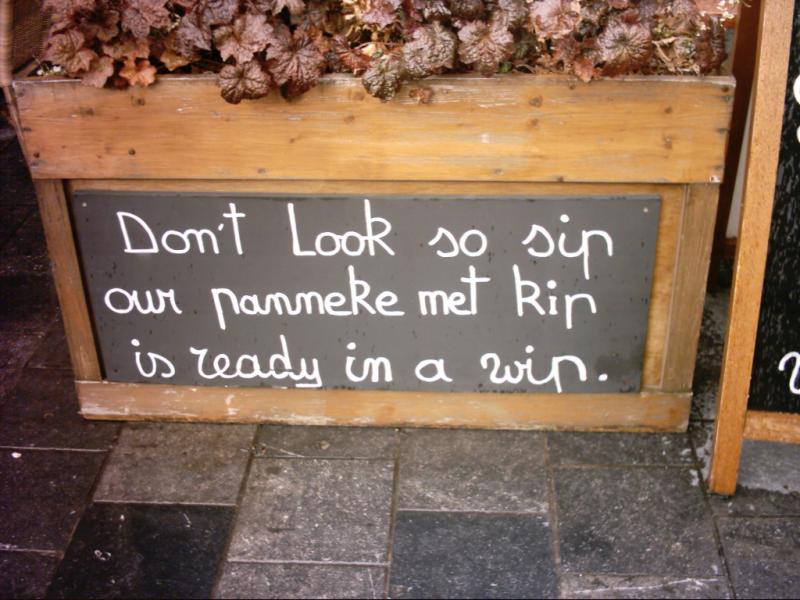 Don't Look so sip
our panneke met kip
is ready in a wip.